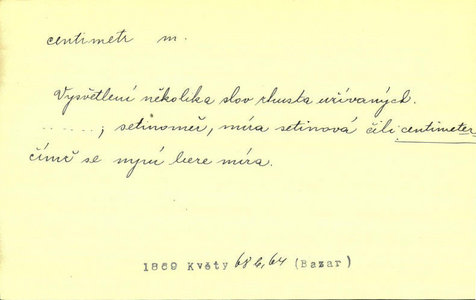 centimetr m.
Vysvětlení několika slov zhusta užívaných.
......; setinoměr, míra setinová čili centimeter
čímž se nyní bere míra.
1869 Květy 68 b, 64 (Bazar)